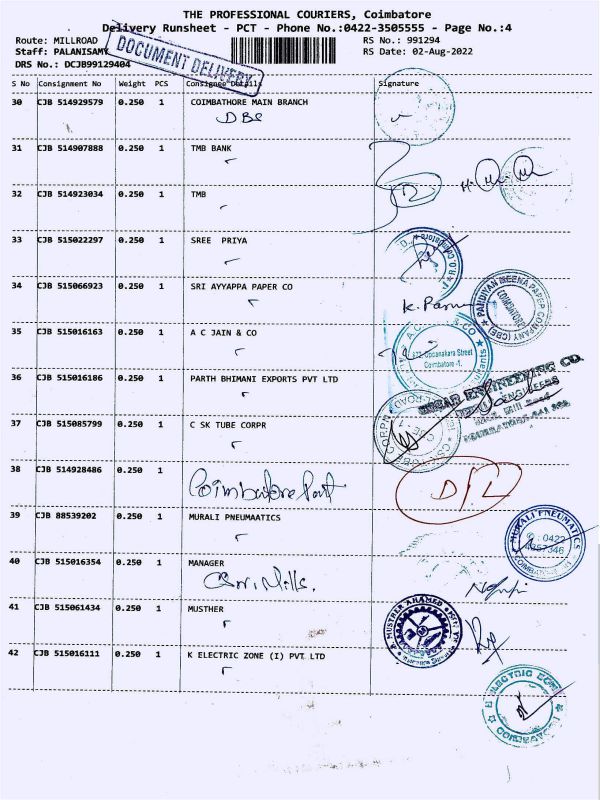 THE PROFESSIONAL COURIERS, Coimbatore
Delivery Runsheet - PCT - Phone No.:0422-3505555 - Page No.:4
Route: MILLROAD RS No.: 991294
Staff: PALANISAMY RS Date: 02-Aug-2022
DRS No.: DCJB99129404
DOCUMENT DELIVERY
S No Consignment No Weight PCS Consignee Details Signature
30 CJB 514929579 0.250 1 COIMBATHORE MAIN BRANCH
31 CJB 514907888 0.250 1 TMB BANK
32 CJB 514923034 0.250 1 TMB
33 CJB 515022297 0.250 1 SREE PRIYA
34 CJB 515066923 0.250 1 SRI AYYAPPA PAPER CO
PANDIYAN MEENA PAPER COMPANY (CBE)
COIMBATORE
35 CJB 515016163 0.250 1 A C JAIN & CO
Oppanakara Street
Coimbatore -1.
36 CJB 515016186 0.250 1 PARTH BHIMANI EXPORTS PVT LTD
ENGINEERING CO.
ENGINEERS
37 CJB 515085799 0.250 1 C SK TUBE CORPR
38 CJB 514928486 0.250 1
Coimbatore
39 CJB 88539202 0.250 1 MURALI PNEUMAATICS
MURALI PNEUMATICS
0422
40 CJB 515016354 0.250 1 MANAGER
Mills.
41 CJB 515061434 0.250 1 MUSTHER
MUSTHER AHAMED
42 CJB 515016111 0.250 1 K ELECTRIC ZONE (I) PVT LTD